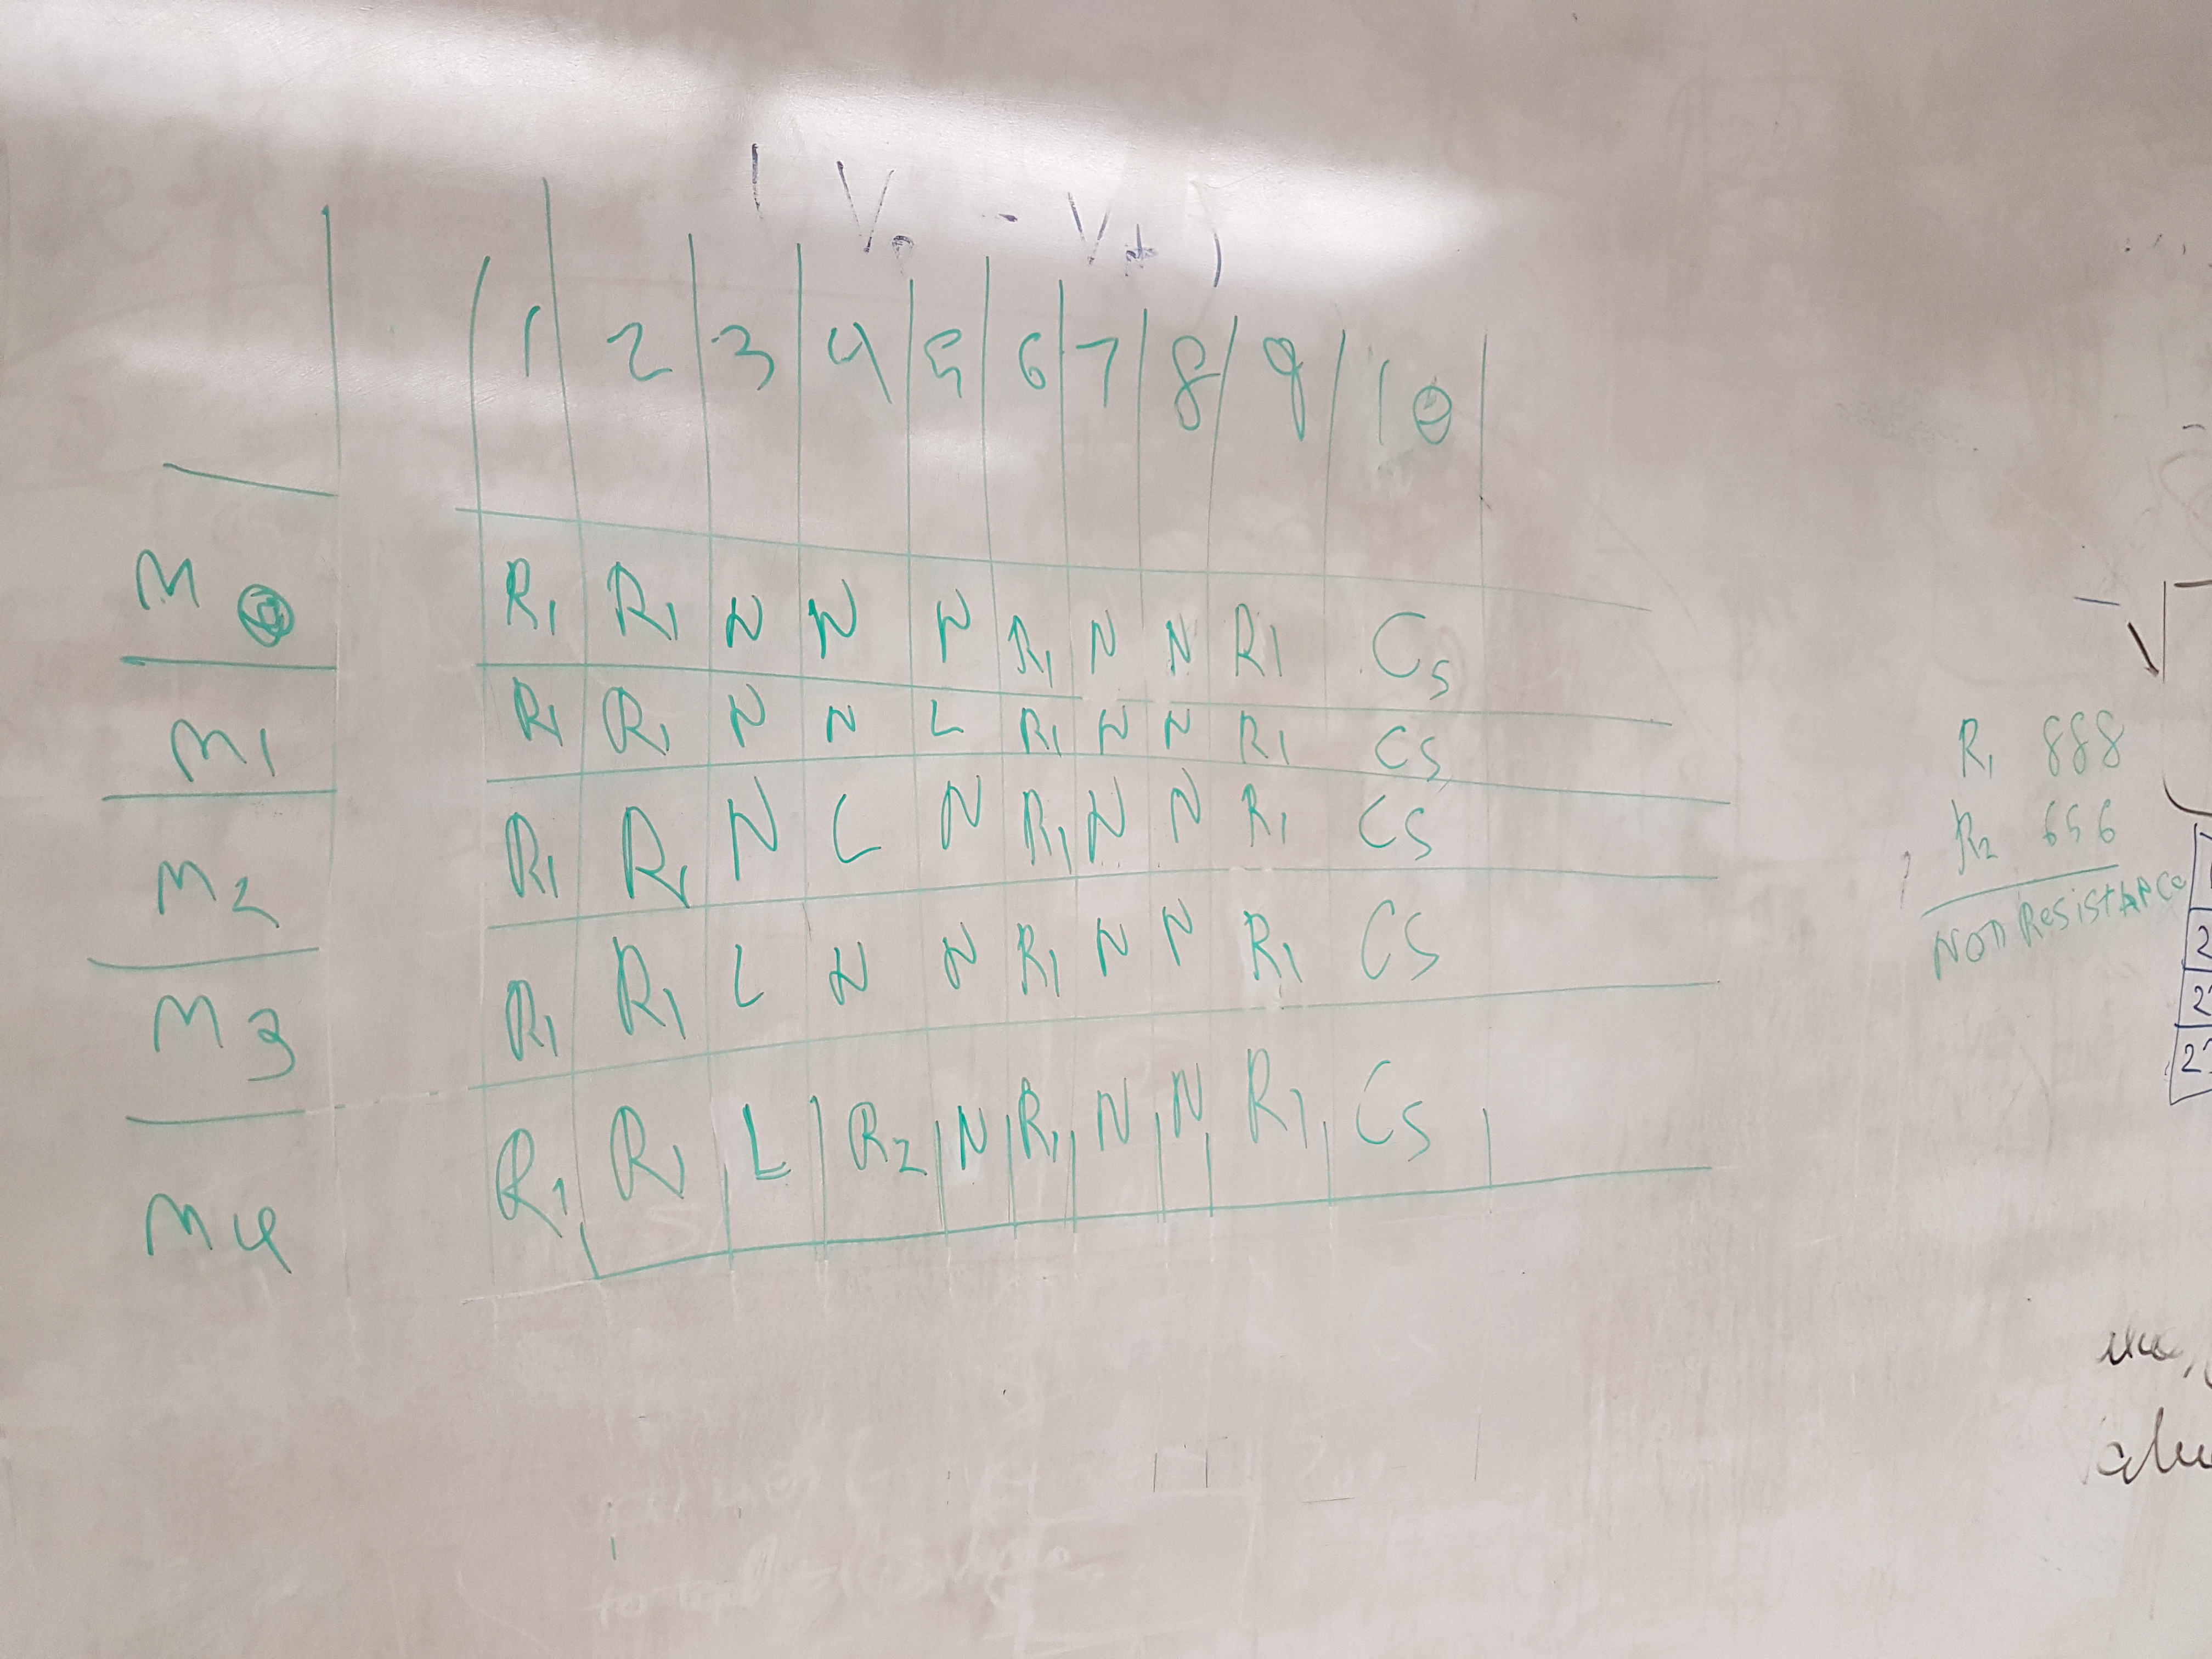 ( V0 - Vt )
1 2 3 4 5 6 7 8 9 10
M0 R1 R1 N N N R1 N N R1 CS
M1 R1 R1 N N L R1 N N R1 CS
M2 R1 R1 N L N R1 N N R1 CS
M3 R1 R1 L N N R1 N N R1 CS
M4 R1 R1 L R2 N R1 N N R1 CS
R1 888
R2 656
Non Resistance
2
2
2